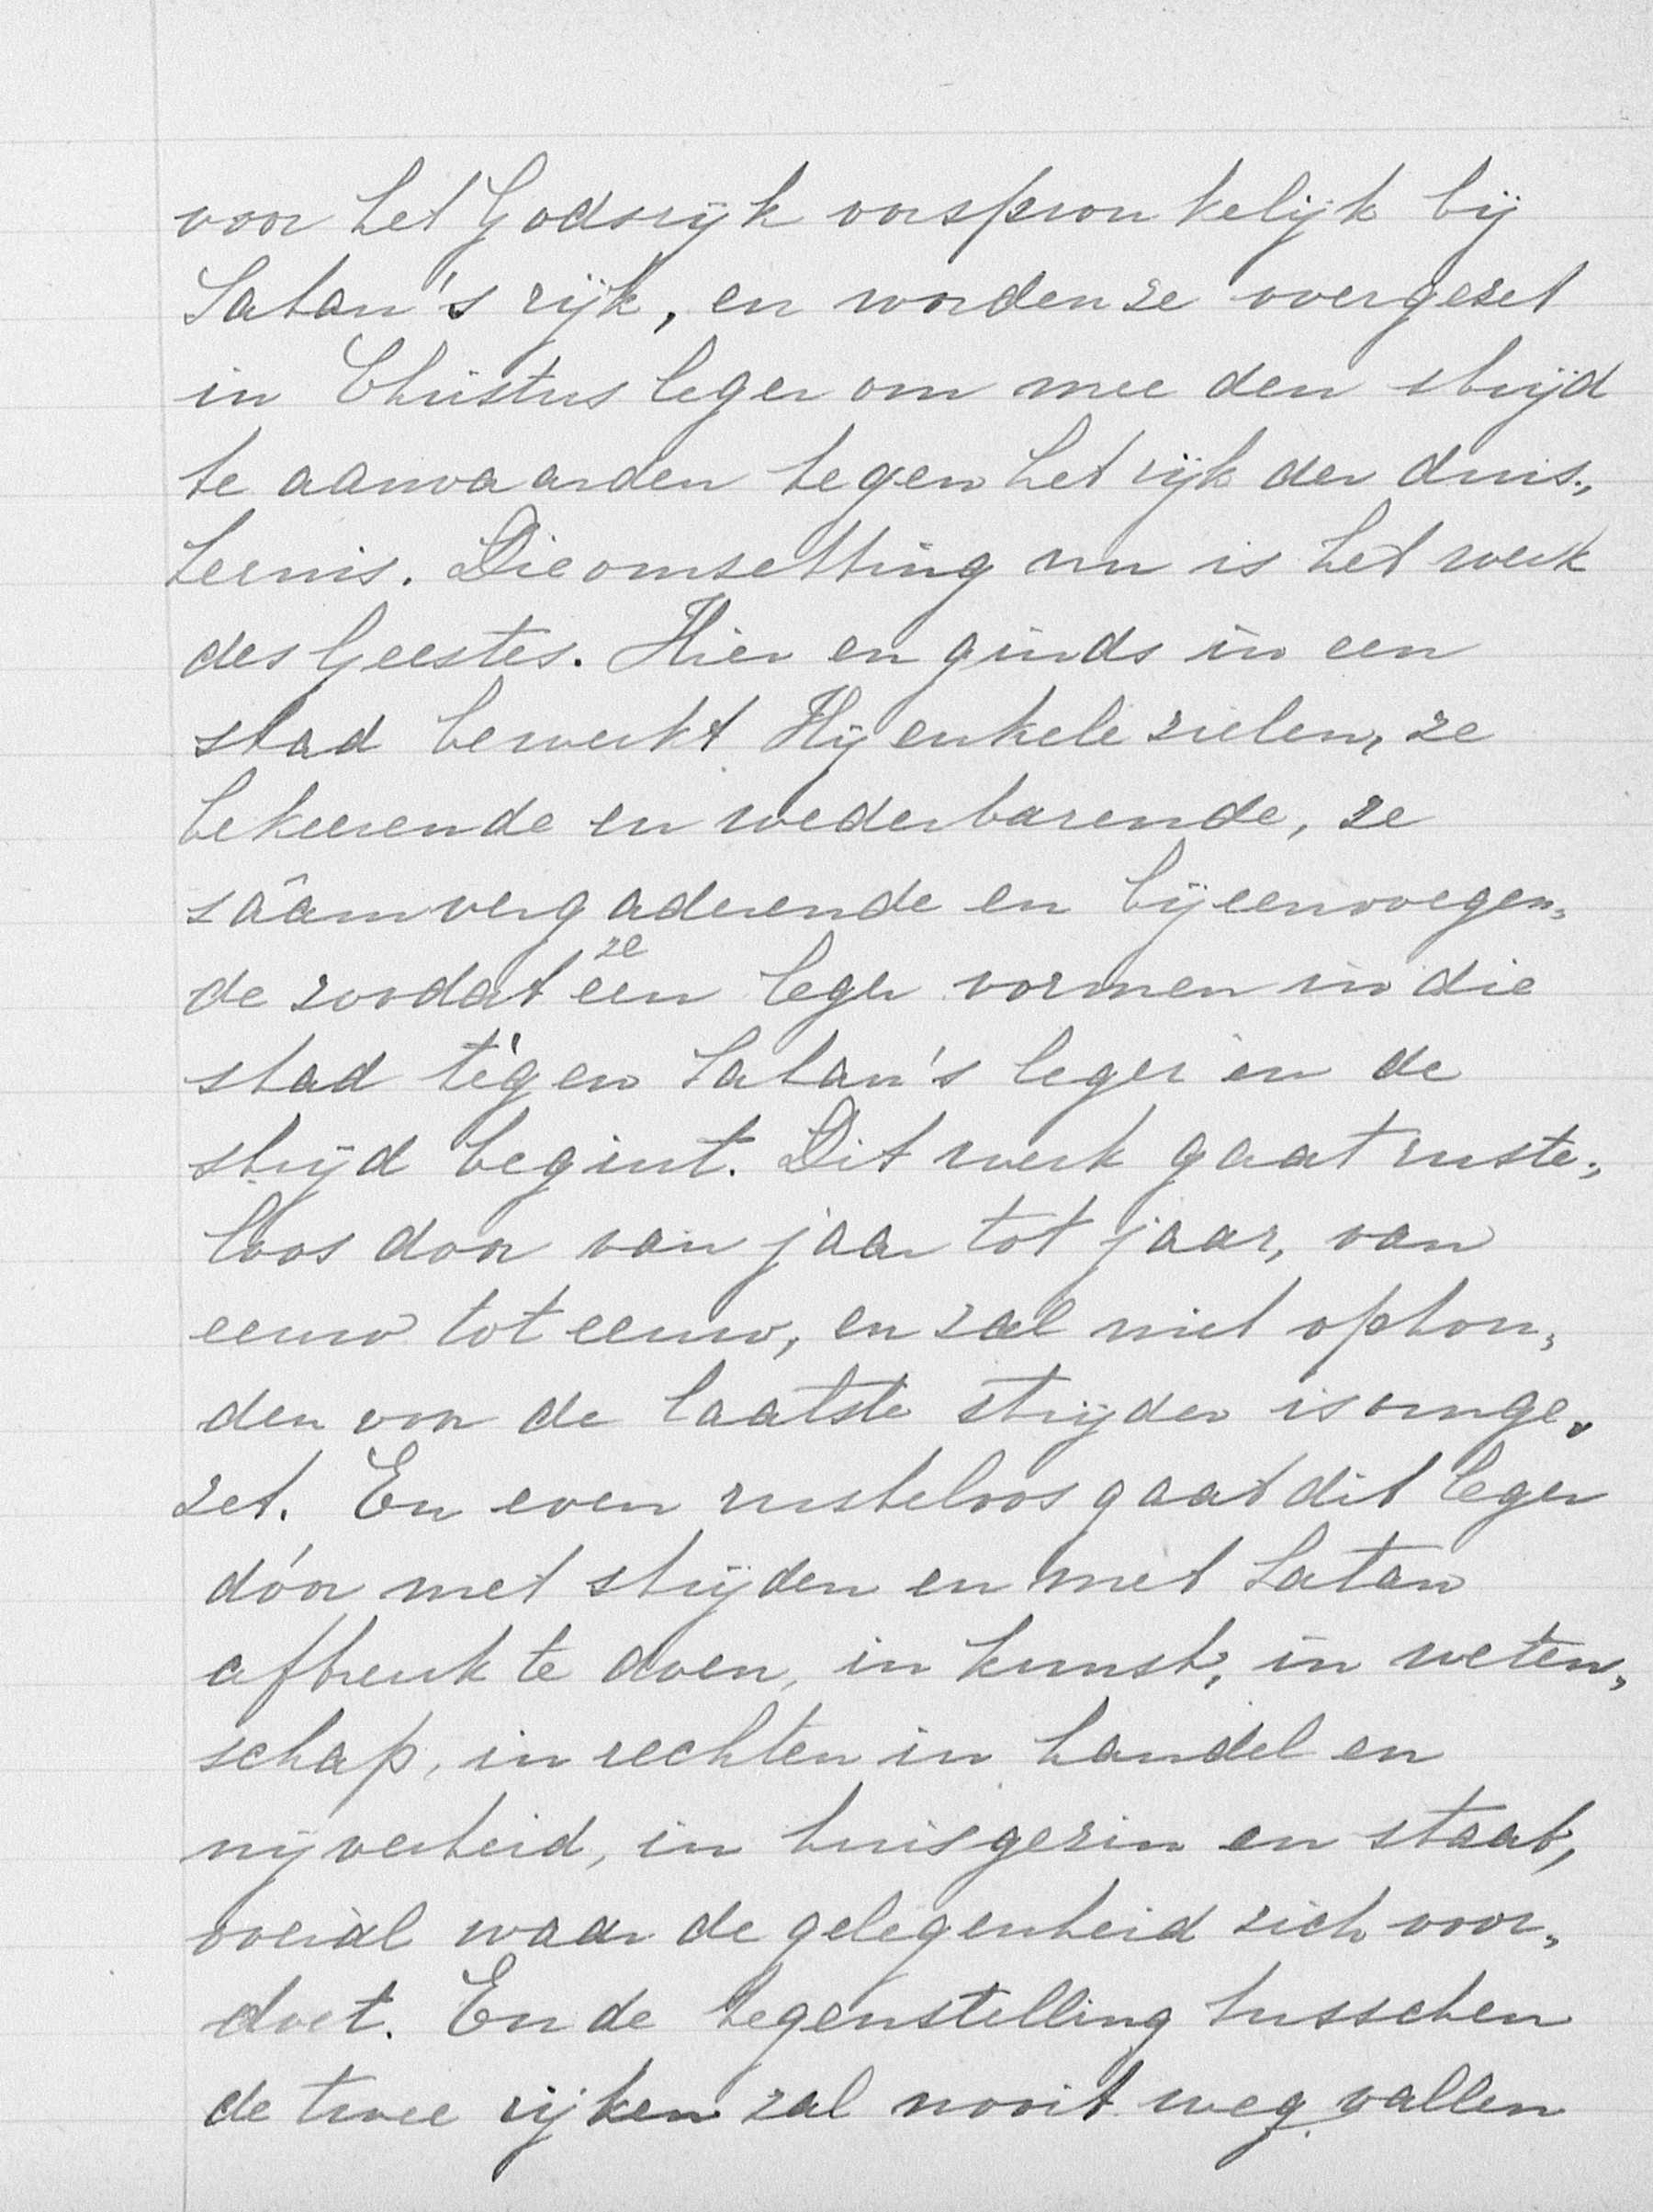 voor het Godsrijk oorspronkelijk bij
Satan's rijk, en worden ze overgezet
in Christus leger om mee den strijd
te aanvaarden tegen het rijk der duis„
ternis. Die omzetting nu is het werk
des Geestes. Hier en ginds in een
stad bewerkt Hij enkele zielen, ze
bekeerende en wederbarende, ze
sââmvergaderende en bijeenvoegen„
de zoodat ze een leger vormen in die
stad tégen Satan's leger en de
strijd begint. Dit werk gaat ruste„
loos door van jaar tot jaar, van
eeuw tot eeuw, en zal niet ophou„
den voor de laatste strijder is omge„
zet. En even rusteloos gaat dit leger
dóor met strijden en met Satan
afbreuk te doen, in kunst, in weten„
schap, in rechten in handel en
nijverheid, in huisgezin en staat,
overal waar de gelegenheid zich voor„
doet. En de tegenstelling tusschen
de twee rijken zal nooit weg vallen